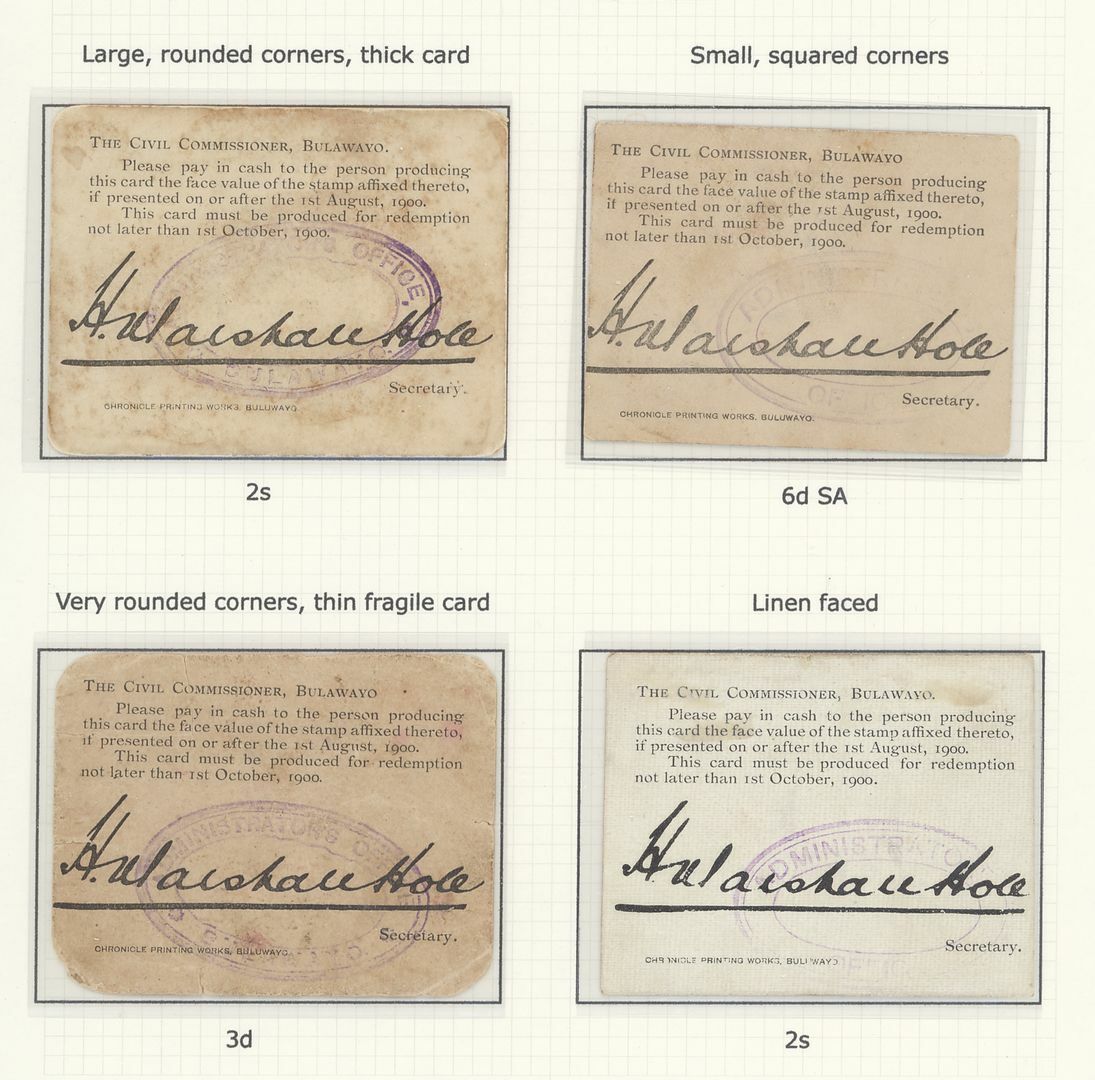 Large, rounded corners, thick card
THE CIVIL COMMISSIONER, BULAWAYO.
Please pay in cash to the person producing
this card the face value of the stamp affixed thereto,
if presented on or after the 1st August, 1900.
This card must be produced for redemption
not later than 1st October, 1900.
OFFICE,
BULAWAYO.
H. Marshall Hole
Secretary.
CHRONICLE PRINTING WORKS, BULUWAYO
2s
Small, squared corners
THE CIVIL COMMISSIONER, BULAWAYO
Please pay in cash to the person producing
this card the face value of the stamp affixed thereto,
if presented on or after the 1st August, 1900.
This card must be produced for redemption
not later than 1st October, 1900.
H. Marshall Hole
Secretary.
CHRONICLE PRINTING WORKS, BULUWAYO.
6d SA
Very rounded corners, thin fragile card
THE CIVIL COMMISSIONER, BULAWAYO
Please pay in cash to the person producing
this card the face value of the stamp affixed thereto,
if presented on or after the 1st August, 1900.
This card must be produced for redemption
not later than 1st October, 1900.
ADMINISTRATOR'S
H. Marshall Hole
Secretary.
CHRONICLE PRINTING WORKS, BULUWAYO.
3d
Linen faced
THE CIVIL COMMISSIONER, BULAWAYO.
Please pay in cash to the person producing
this card the face value of the stamp affixed thereto,
if presented on or after the 1st August, 1900.
This card must be produced for redemption
not later than 1st October, 1900.
H. Marshall Hole
Secretary.
CHRONICLE PRINTING WORKS, BULUWAYO
2s